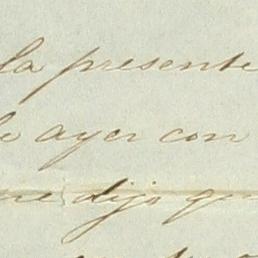 la presente
ayer con
dijo que